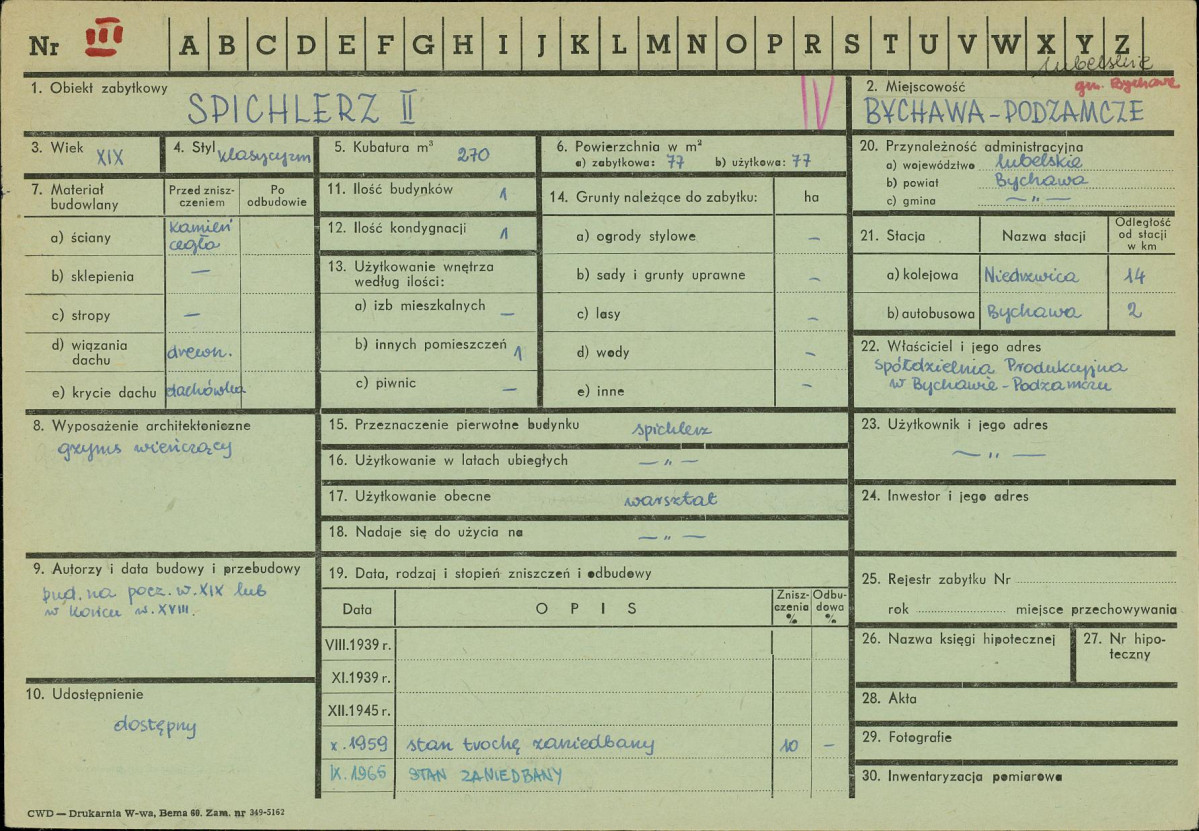 Nr III A B C D E F G H I J K L M N O P R S T U V W X Y Z
lubelskie
gm. Bychawa
1. Obiekt zabytkowy
SPICHLERZ II
IV
2. Miejscowość
BYCHAWA-PODZAMCZE
3. Wiek XIX
4. Styl klasycyzm
5. Kubatura m³ 270
6. Powierzchnia w m²
a) zabytkowa: 77 b) użytkowa: 77
20. Przynależność administracyjna
a) województwo lubelskie
b) powiat Bychawa
c) gmina — „ —
7. Materiał budowlany
Przed zniszczeniem
Po odbudowie
a) ściany kamień cegła
b) sklepienia —
c) stropy —
d) wiązania dachu drewn.
e) krycie dachu dachówka
11. Ilość budynków 1
12. Ilość kondygnacji 1
13. Użytkowanie wnętrza
według ilości:
a) izb mieszkalnych —
b) innych pomieszczeń 1
c) piwnic —
14. Grunty należące do zabytku: ha
a) ogrody stylowe —
b) sady i grunty uprawne —
c) lasy —
d) wody —
e) inne —
21. Stacja
Nazwa stacji
Odległość
od stacji
w km
a) kolejowa Niedrzwica 14
b) autobusowa Bychawa 2
22. Właściciel i jego adres
Spółdzielnia Produkcyjna
w Bychawie-Podzamczu
8. Wyposażenie architektoniczne
gzyms wieńczący
15. Przeznaczenie pierwotne budynku spichlerz
16. Użytkowanie w latach ubiegłych — „ —
17. Użytkowanie obecne warsztat
18. Nadaje się do użycia na — „ —
23. Użytkownik i jego adres
— „ —
24. Inwestor i jego adres
9. Autorzy i data budowy i przebudowy
bud. na pocz. w. XIX lub
w końcu w. XVIII.
10. Udostępnienie
dostępny
19. Data, rodzaj i stopień zniszczeń i odbudowy
Data
OPIS
Zniszczenia %
Odbudowa %
VIII.1939 r.
XI.1939 r.
XII.1945 r.
X.1959 stan trochę zaniedbany 10 —
IX.1965 STAN ZANIEDBANY
25. Rejestr zabytku Nr
rok miejsce przechowywania
26. Nazwa księgi hipotecznej
27. Nr hipoteczny
28. Akta
29. Fotografie
30. Inwentaryzacja pomiarowa
CWD — Drukarnia W-wa, Bema 60. Zam. nr 349-5162